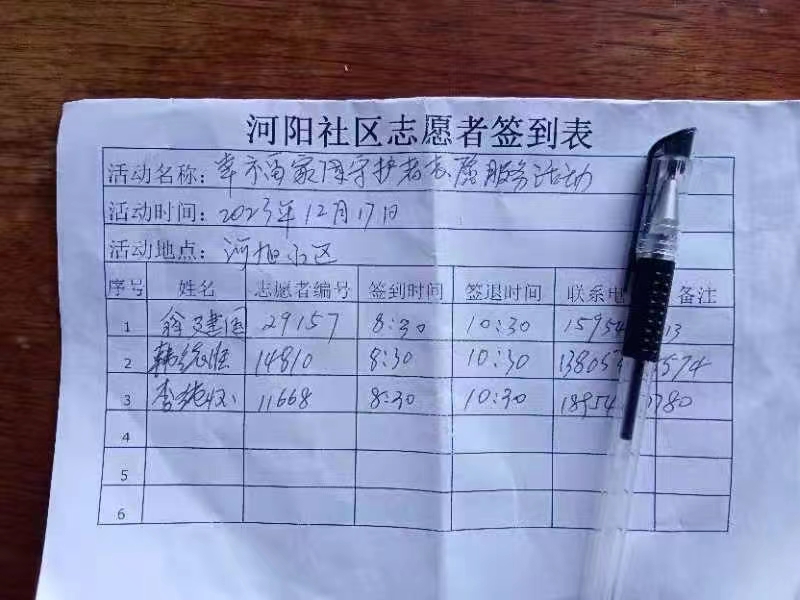 河阳社区志愿者签到表
活动名称：幸福家园守护者志愿服务活动
活动时间：2023年12月17日
活动地点：河旭小区
序号 姓名 志愿者编号 签到时间 签退时间 联系电 备注
1 翁建国 29157 8:30 10:30 15954 13
2 韩 14810 8:30 10:30 13805 574
3 李 11668 8:30 10:30 18954 780
4
5
6